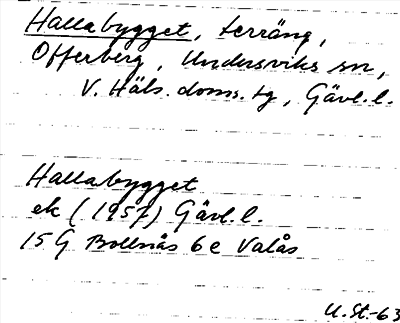 Hallabygget, terräng,
Offerberg, Undersviks sn,
V. Häls. doms. tg, Gävl.l.
Hallabygget
ek (1957) Gävl.l.
15G Bollnäs 6e Valås
U.St.-63